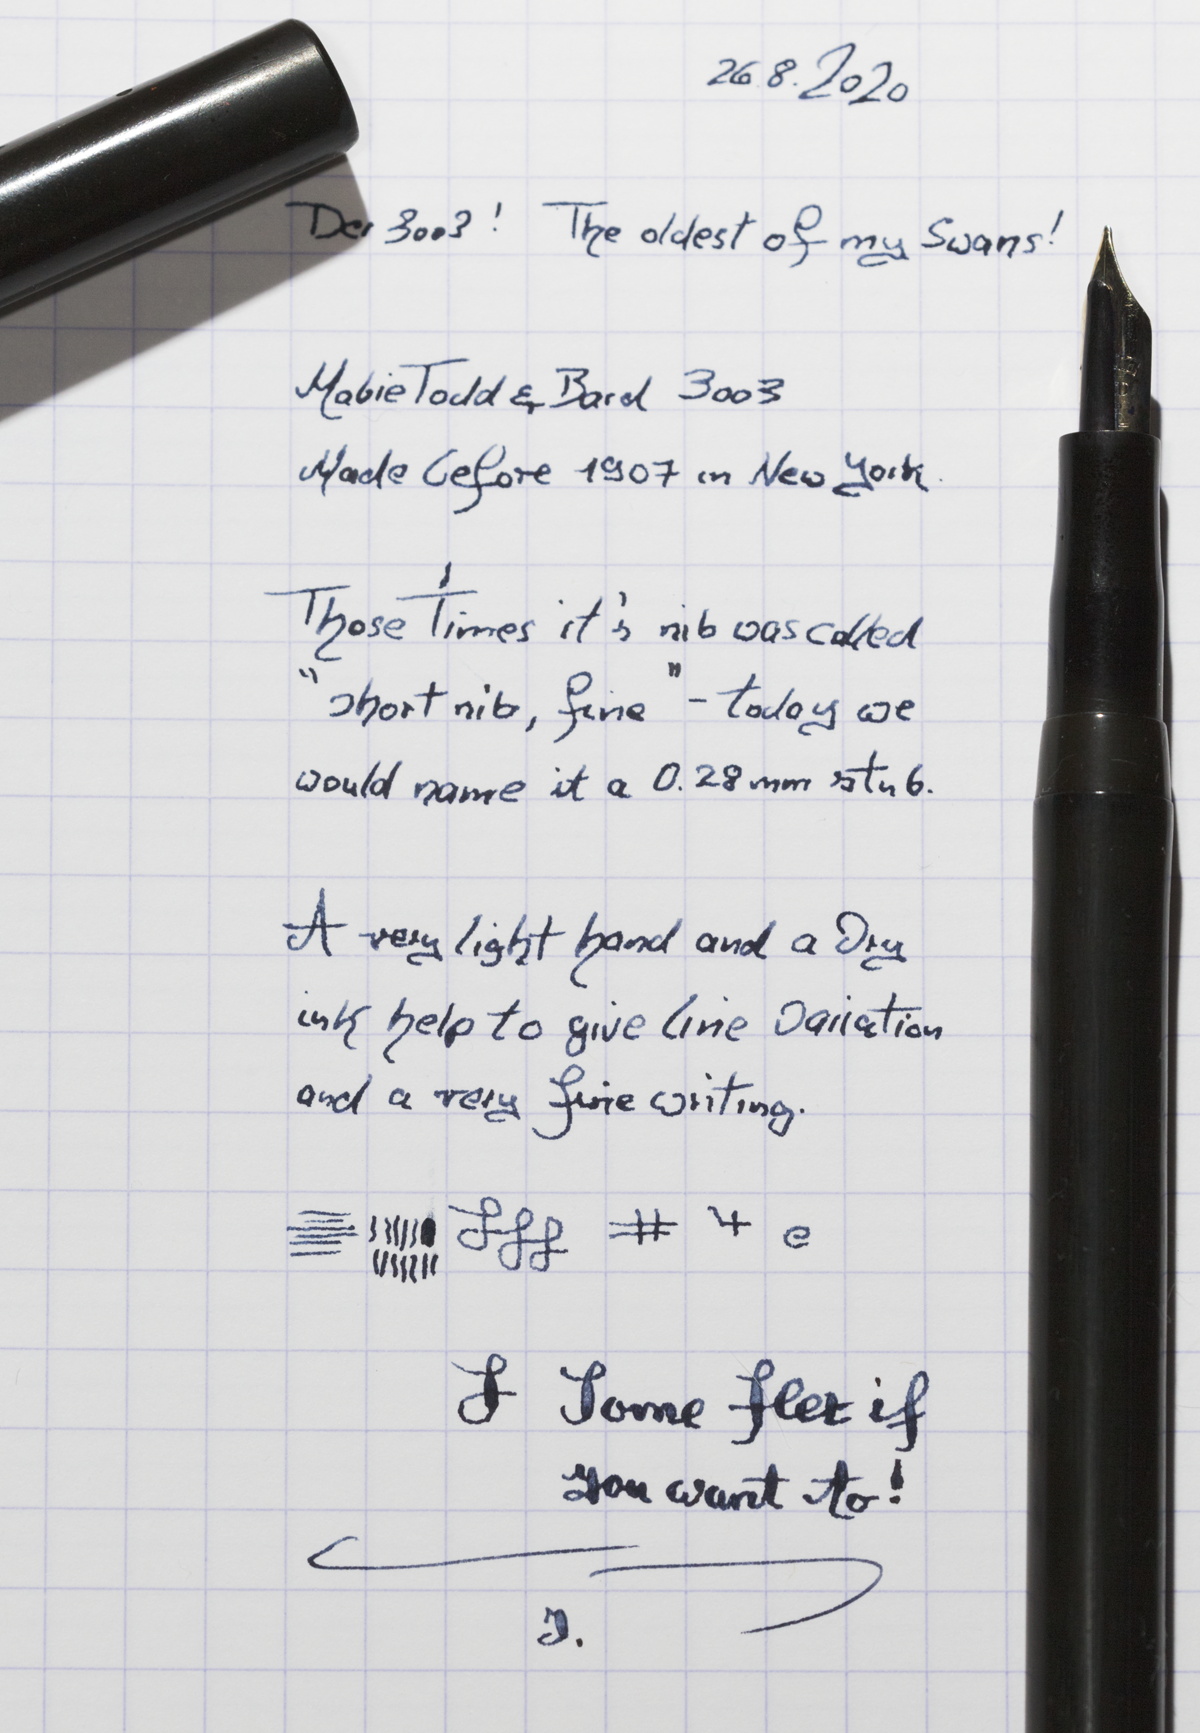 26.8.2020
Der 3003! The oldest of my Swans!
Mabie Todd & Bard 3003
Made before 1907 in New York.
Those Times it's nib was called
"short nib, fine" - today we
would name it a 0.28mm stub.
A very light hand and a Dry
ink help to give line Variation
and a very fine writing.
fff # 4 e
f Some flex if
you want to!
J.